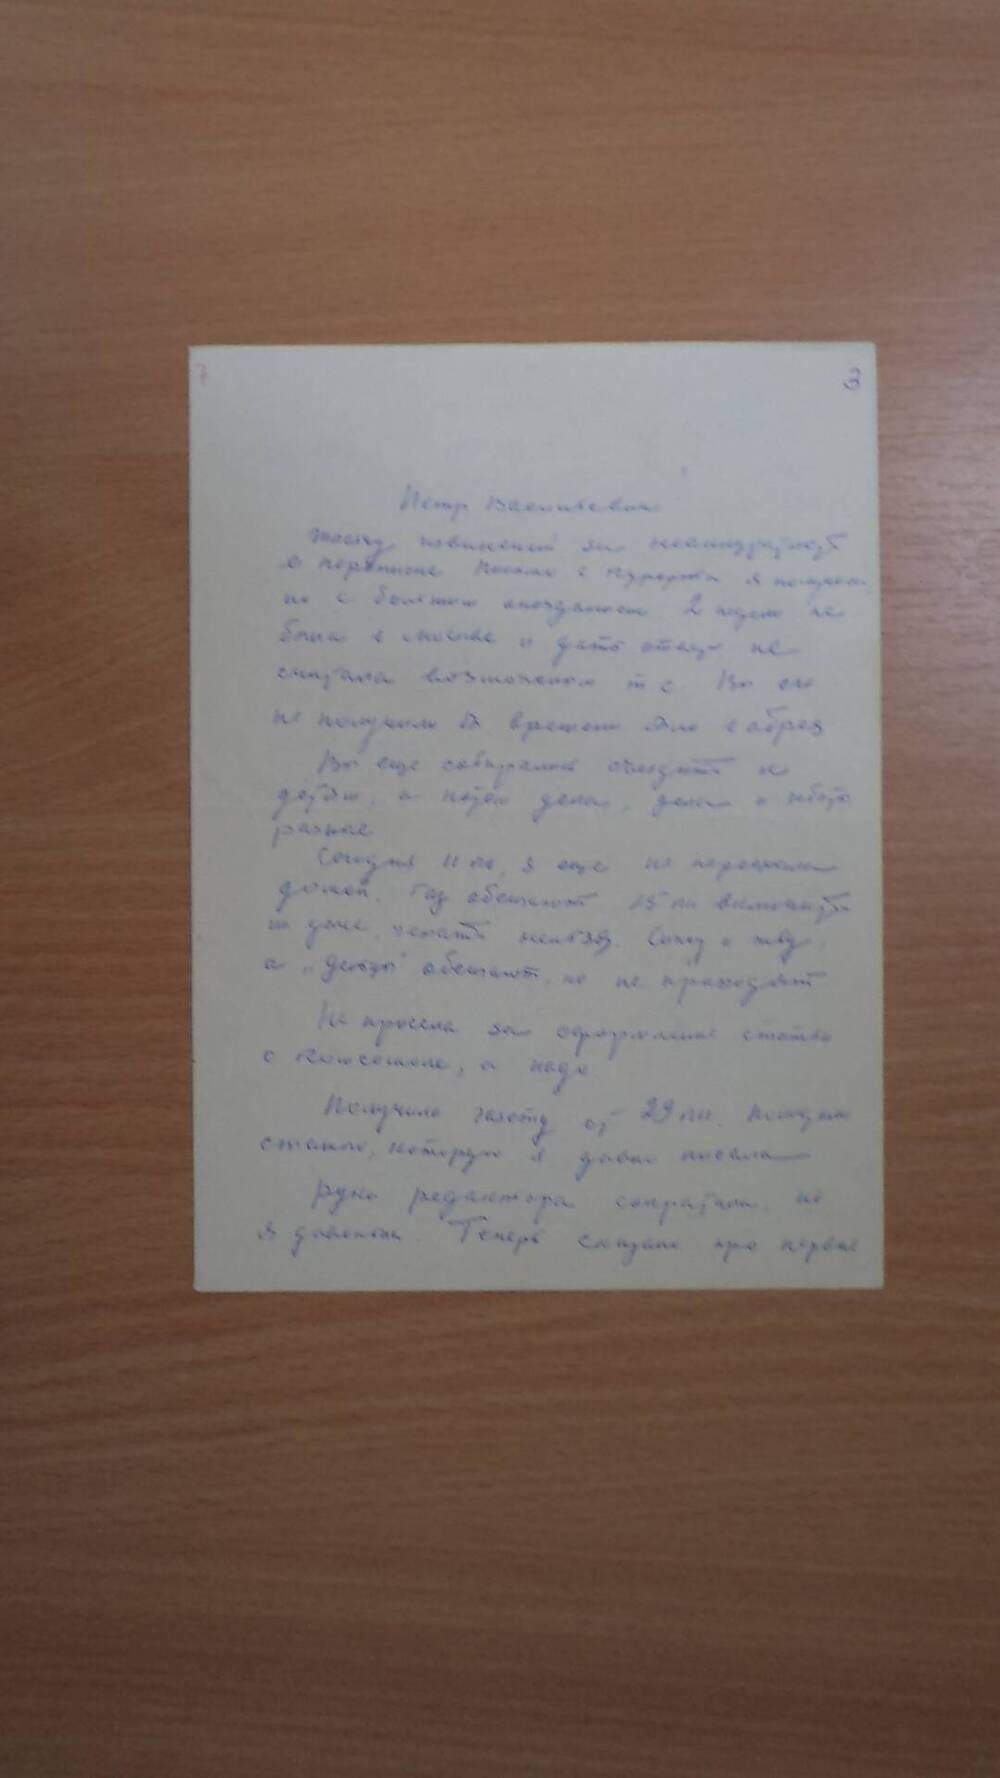 7 3
Петр Васильевич
прошу извинений за неаккуратность
в переписке Письмо с курорта я получила,
но с большим опозданием. 2 недели не
была в Москве и дать ответ не
считала возможном т с Вы его
не получили б времени было в обрез
Вы еще собирались съездить к
детям, а потом дела, дела и заботы
разные
Сегодня 11, я еще не переехала
домой. Газ обещают 15 включить
уже, ехать нельзя. Сижу и жду,
а "дельцы" обещают, но не приходят
Не просела за оформление статьи
о комсомоле, а надо
Получила газету от 29. Поместили
статью, которую я давно писала
Рука редактора сократила, но
я довольна. Теперь сказано про первые